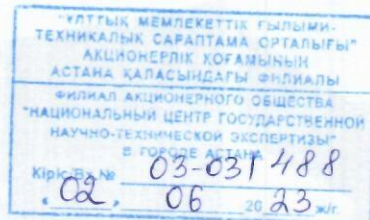 "ҰЛТТЫҚ МЕМЛЕКЕТТІК ҒЫЛЫМИ-
ТЕХНИКАЛЫҚ САРАПТАМА ОРТАЛЫҒЫ"
АКЦИОНЕРЛІК ҚОҒАМЫНЫҢ
АСТАНА ҚАЛАСЫНДАҒЫ ФИЛИАЛЫ
ФИЛИАЛ АКЦИОНЕРНОГО ОБЩЕСТВА
"НАЦИОНАЛЬНЫЙ ЦЕНТР ГОСУДАРСТВЕННОЙ
НАУЧНО-ТЕХНИЧЕСКОЙ ЭКСПЕРТИЗЫ"
В ГОРОДЕ АСТАНА
Кіріс/Вх.№ 03-031488
"02" 06 2023 ж/г.